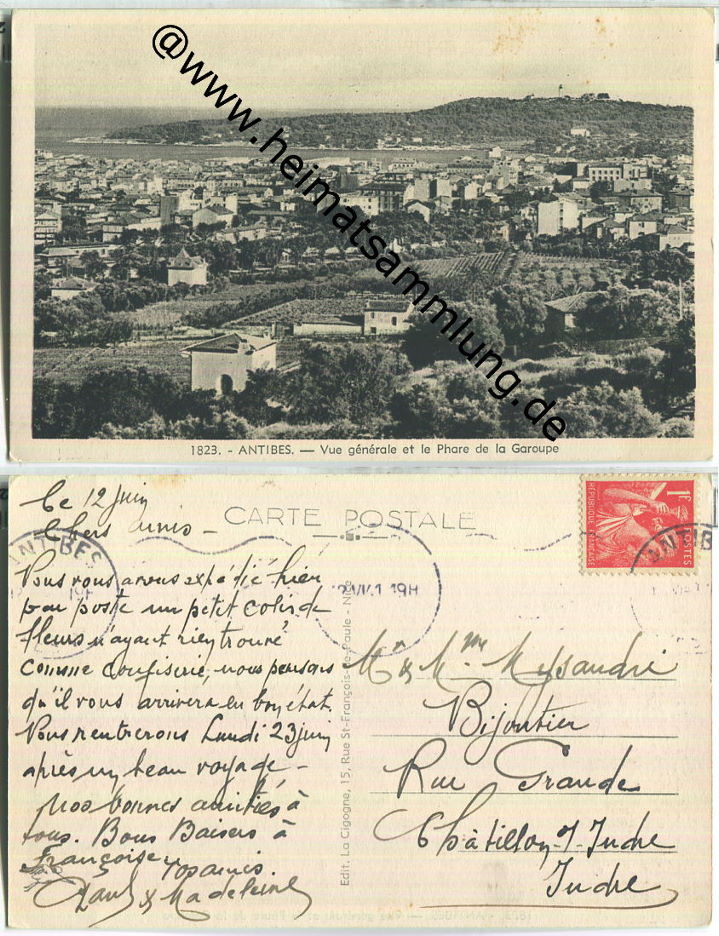 @www.heimatsammlung.de
1823. - ANTIBES. — Vue générale et le Phare de la Garoupe
CARTE POSTALE
RÉPUBLIQUE FRANÇAISE
1F
POSTES
ANTIBES
19H
ANTIB
Ce 12 Juin
Chers amis -
Nous vous avons expédié hier
par poste un petit colis de
fleurs n'ayant rien trouvé
comme confiserie, nous pensons
qu'il vous arrivera en bon état.
Nous rentrerons Lundi 23 juin
après un beau voyage -
Nos bonnes amitiés à
tous. Bons Baisers à
Françoise
Vos amis.
Paul & Madeleine
Edit. La Cigogne, 15, Rue St-François-de-Paule - Nice
Mr & Mme
Bijoutier
Rue Grande
Châtillon-s/-Indre
Indre